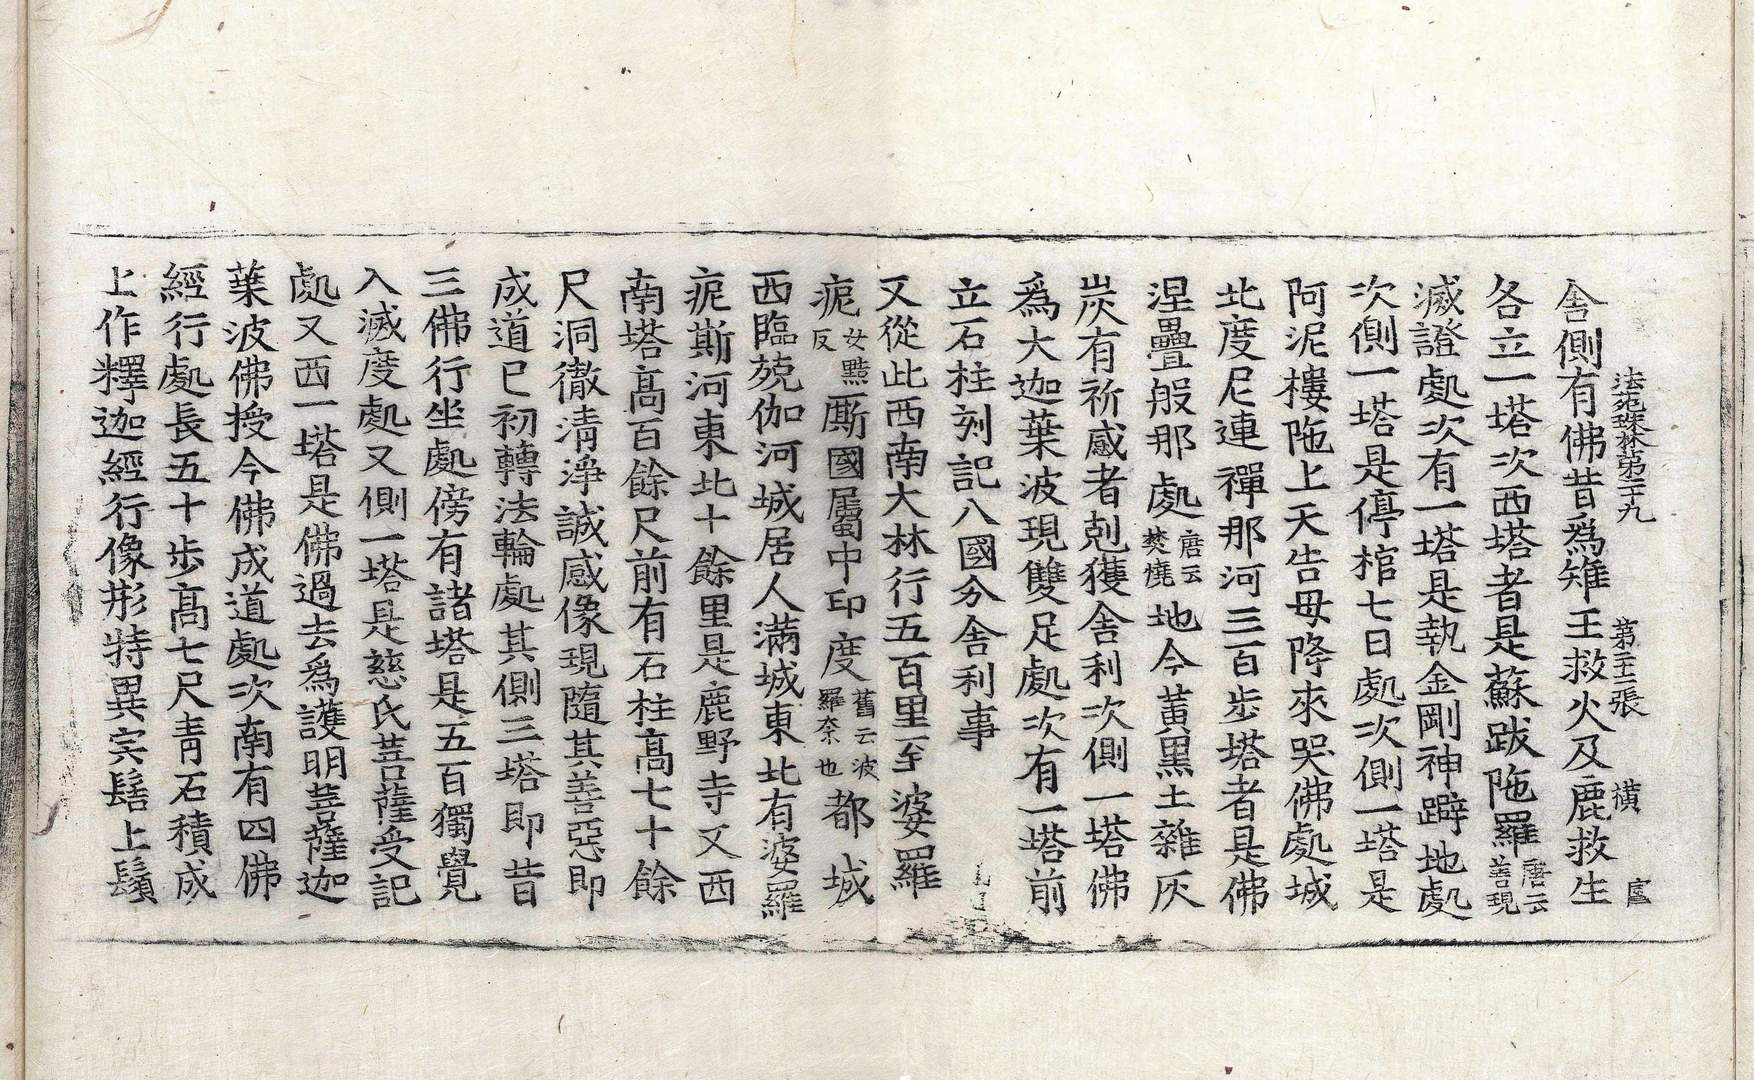 法苑珠林第二十九 第二十二張 橫 宣
舍側有佛昔為雉王救火及鹿救生
各立一塔次西塔者是蘇跋陁羅唐云善現
滅證處次有一塔是執金剛神躃地處
次側一塔是停棺七日處次側一塔是
阿泥樓陁上天告母降來哭佛處城
北度尼連禪那河三百步塔者是佛
涅疊般那處唐云焚燒地今黃黑土雜灰
炭有祈感者剋獲舍利次側一塔佛
為大迦葉波現雙足處次有一塔前
立石柱刻記八國分舍利事
又從此西南大林行五百里至婆羅
痆女黠反廝國屬中印度舊云波羅奈也都城
西臨兢伽河城居人滿城東北有婆羅
痆斯河東北十餘里是鹿野寺又西
南塔高百餘尺前有石柱高七十餘
尺洞徹清淨誠感像現隨其善惡即
成道已初轉法輪處其側三塔即昔
三佛行坐處傍有諸塔是五百獨覺
入滅度處又側一塔是慈氏菩薩受記
處又西一塔是佛過去為護明菩薩迦
葉波佛授今佛成道處次南有四佛
經行處長五十步高七尺青石積成
上作釋迦經行像形特異宍髻上鬚